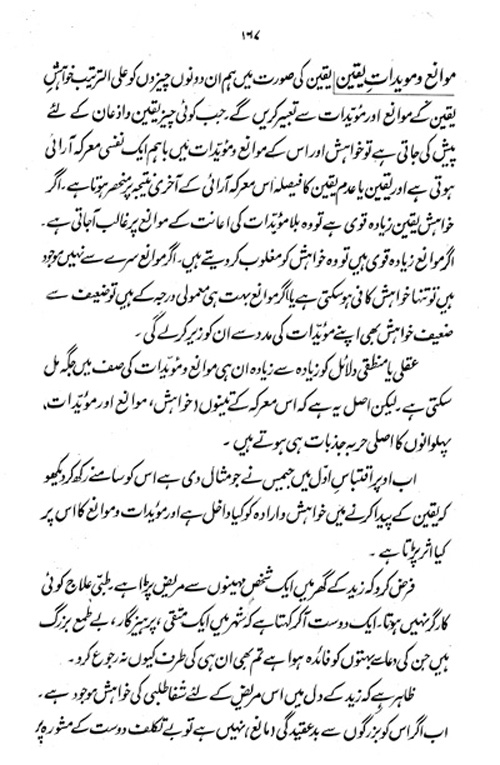 ۱۶۷
موانع و مویدات یقین | یقین کی صورت میں ہم ان دونوں چیزوں کو علی الترتیب خواہشِ
یقین کے موانع اور مؤیّدات سے تعبیر کریں گے۔ جب کوئی چیز یقین و اذعان کے لئے
پیش کی جاتی ہے تو خواہش اور اس کے موانع و مؤیّدات میں باہم ایک نفسی معرکہ آرائی
ہوتی ہے اور یقین یا عدم یقین کا فیصلہ اس معرکہ آرائی کے آخری نتیجہ پر منحصر ہوتا ہے۔ اگر
خواہش یقین زیادہ قوی ہے تو وہ بلا مؤیّدات کی اعانت کے موانع پر غالب آجاتی ہے۔
اگر موانع زیادہ قوی ہیں تو وہ خواہش کو مغلوب کر دیتے ہیں۔ اگر موانع سرے سے نہیں موجود
ہیں تو تنہا خواہش کافی ہو سکتی ہے یا اگر موانع بہت ہی معمولی درجہ کے ہیں تو ضعیف سے
ضعیف خواہش بھی اپنے مؤیّدات کی مدد سے ان کو زیر کر لے گی۔
عقلی یا منطقی دلائل کو زیادہ سے زیادہ ان ہی موانع و مؤیّدات کی صف میں جگہ مل
سکتی ہے۔ لیکن اصل یہ ہے کہ اس معرکہ کے تینوں (خواہش، موانع اور مؤیّدات،
پہلوانوں کا اصلی حربہ جذبات ہی ہوتے ہیں۔
اب اوپر اقتباسِ اوّل میں جیمس نے جو مثال دی ہے اس کو سامنے رکھ کر دیکھو
کہ یقین کے پیدا کرنے میں خواہش و ارادہ کو کیا دخل ہے اور مؤیدات و موانع کا اس پر
کیا اثر پڑتا ہے۔
فرض کرو کہ زید کے گھر میں ایک شخص مہینوں سے مریض پڑا ہے۔ طبّی علاج کوئی
کارگر نہیں ہوتا۔ ایک دوست آکر کہتا ہے کہ شہر میں ایک متقی، پرہیزگار، بے طمع بزرگ
ہیں جن کی دعا سے بہتوں کو فائدہ ہوا ہے تم بھی ان ہی کی طرف کیوں نہ رجوع کرو۔
ظاہر ہے کہ زید کے دل میں اس مریض کے لئے شفا طلبی کی خواہش موجود ہے۔
اب اگر اس کو بزرگوں سے بدعقیدگی (مانع) نہیں ہے تو بے تکلف دوست کے مشورہ پر